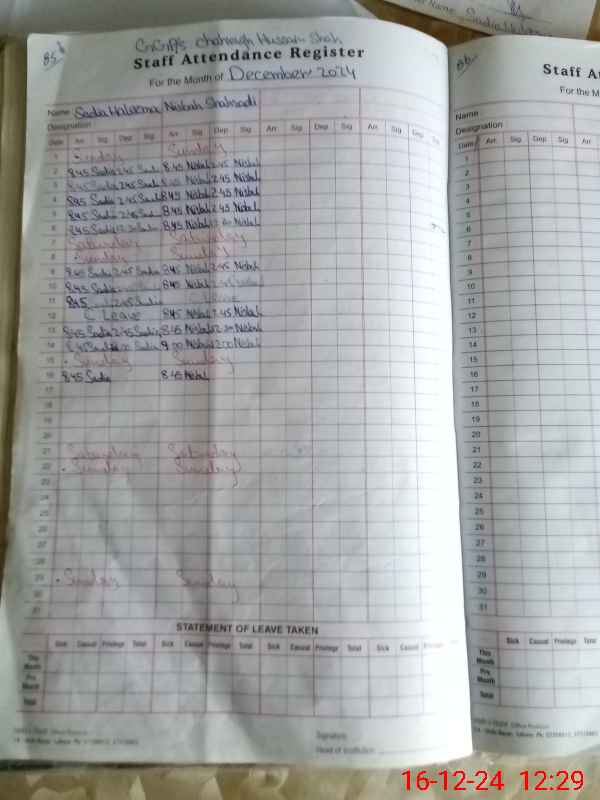 85
Chahragh Hussain Shah
Staff Attendance Register
For the Month of December 2024
Name Sadia Haleema Nisbah Shahzadi
Designation
Date Arr. Sig Dep Sig Arr. Sig Dep Sig Arr. Sig Dep Sig Arr. Sig Dep
1 Sunday Sunday
2 8.45 Sadia 2.45 Sadia 8.45 Nisbah 2.45 Nisbah
3 8.45 Sadia 2.45 Sadia 8.45 Nisbah 2.45 Nisbah
4 8.45 Sadia 2.45 Sadia 8.45 Nisbah 2.45 Nisbah
5 8.45 Sadia 2.45 Sadia 8.45 Nisbah 2.45 Nisbah
6 8.45 Sadia 12.30 Sadia 8.45 Nisbah Nisbah
7 Saturday Saturday
8 Sunday Sunday
9 8.45 Sadia 2.45 Sadia 8.45 Nisbah 2.45 Nisbah
10 8.45 Sadia 8.45 Nisbah 2.45 Nisbah
11 8.45 2.45 Sadia Leave
12 C Leave 8.45 Nisbah 2.45 Nisbah
13 8.45 Sadia 2.45 Sadia 8.45 Nisbah 12.30 Nisbah
14 8.45 Sadia Sadia 9.00 Nisbah 12.00 Nisbah
15 Sunday Sunday
16 8.45 Sadia 8.45 Nisbah
17
18
19
20
21 Saturday Saturday
22 Sunday Sunday
23
24
25
26
27
28
29 Sunday Sunday
30
31
STATEMENT OF LEAVE TAKEN
Sick Casual Privilege Total Sick Casual Privilege Total Sick Casual Privilege Total Sick Casual
This Month
Pre Month
Total
Signature
Head of Institution
86
Staff A
For the M
Name
Designation
Date Arr. Sig Dep Sig Arr
1
2
3
4
5
6
7
8
9
10
11
12
13
14
15
16
17
18
19
20
21
22
23
24
25
26
27
28
29
30
31
Sick Casual Privilege Total Sick
This Month
Pre Month
Total
16-12-24 12:29